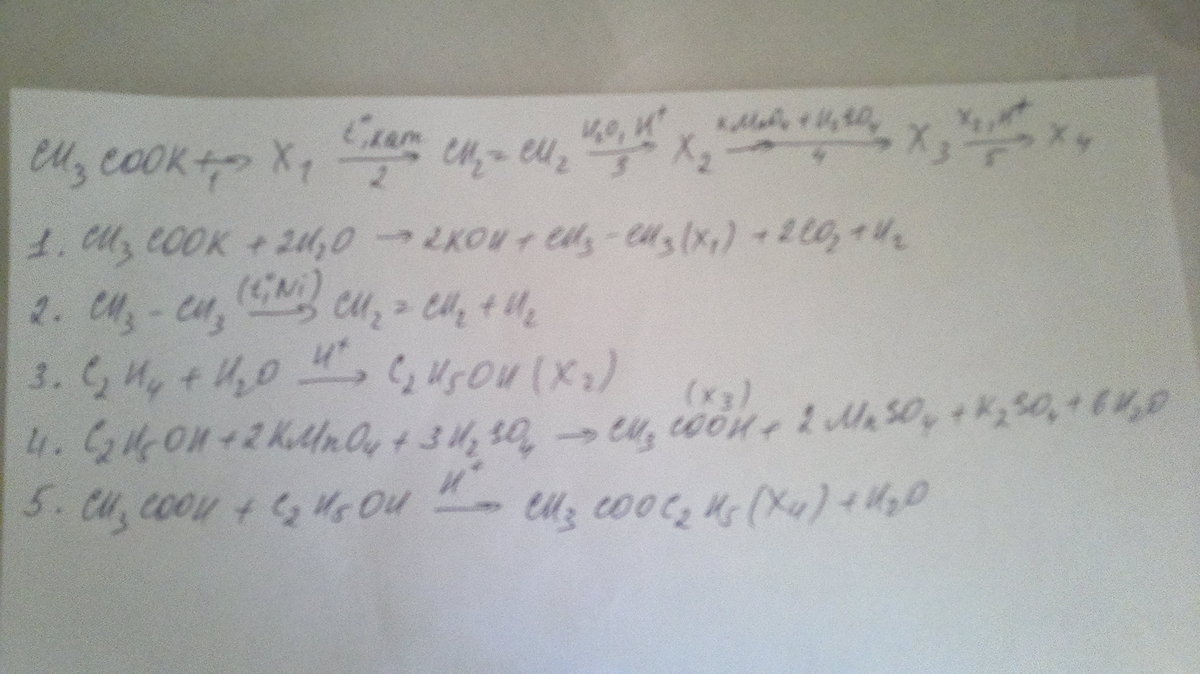 CH3COOK + →1 X1 →(t°, кат)2 CH2=CH2 →(H2O, H+)3 X2 →(KMnO4 + H2SO4)4 X3 →(X2, H+)5 X4
1. CH3COOK + 2H2O → 2KOH + CH3-CH3(X1) + 2CO2 + H2
2. CH3-CH3 →(t°, Ni) CH2=CH2 + H2
3. C2H4 + H2O →H+ C2H5OH (X2)
4. C2H5OH + 2KMnO4 + 3H2SO4 → CH3COOH (X3) + 2MnSO4 + K2SO4 + 6H2O
5. CH3COOH + C2H5OH →H+ CH3COOC2H5 (X4) + H2O